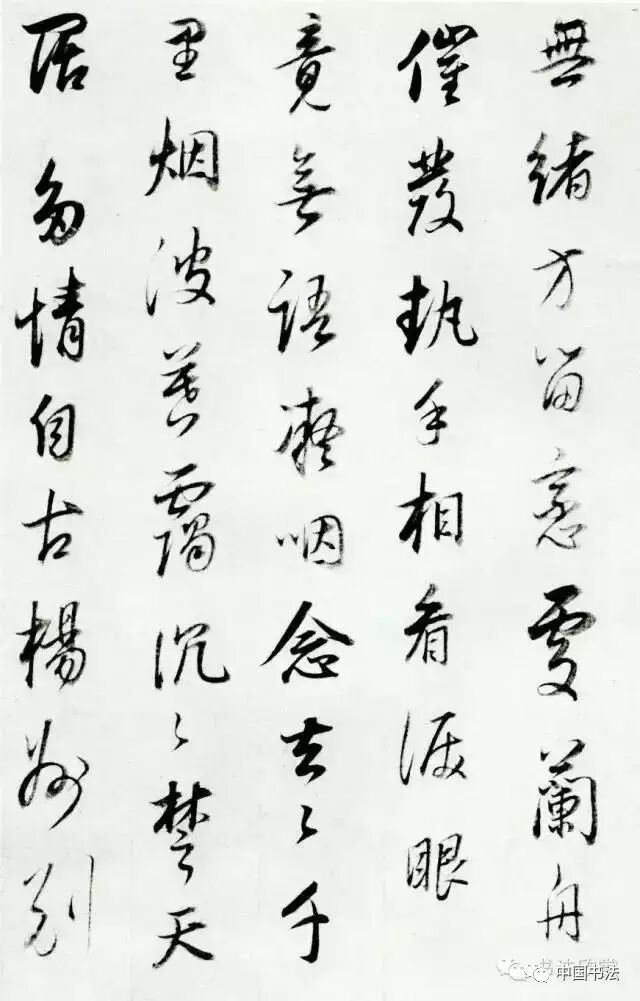 無緒方留戀處蘭舟
催發執手相看淚眼
竟無語凝咽念去々千
里烟波暮靄沉々楚天
闊多情自古傷離別
中国书法